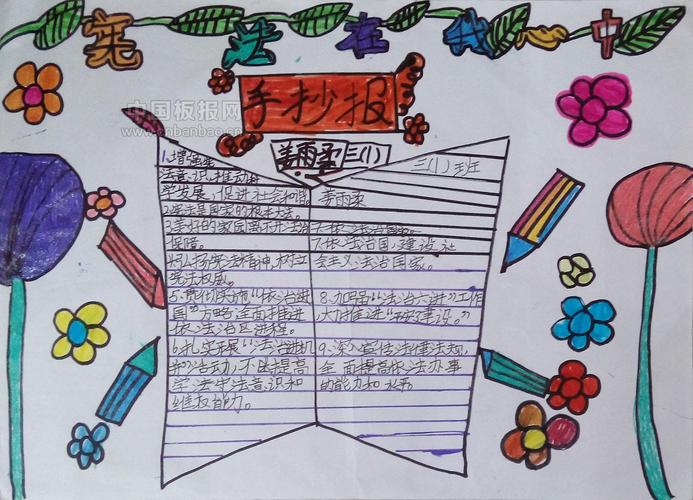 宪法在我心中
手抄报
中国板报网
www.cnbanbao.cn
姜雨柔三(1)
1.增强宪
法意识,推动科
学发展,促进社会和谐
2.宪法是国家的根本大法。
3.美好的家园离不开法治
保障。
4.弘扬宪法精神,树立
宪法权威。
5.贯彻实施“依法治
国”方略全面推进
依法治区进程。
6.扎实开展“法治进机
关”活动,不断提高
学法守法意识和
维权能力。
三(1)班
姜雨柔
7.依法治国
7.依法治国,建设社
会主义法治国家。
8.加强“法治六进”工作
大力推进“建设。”
9.深入宣传法律法规,
全面提高依法办事
的能力和水平